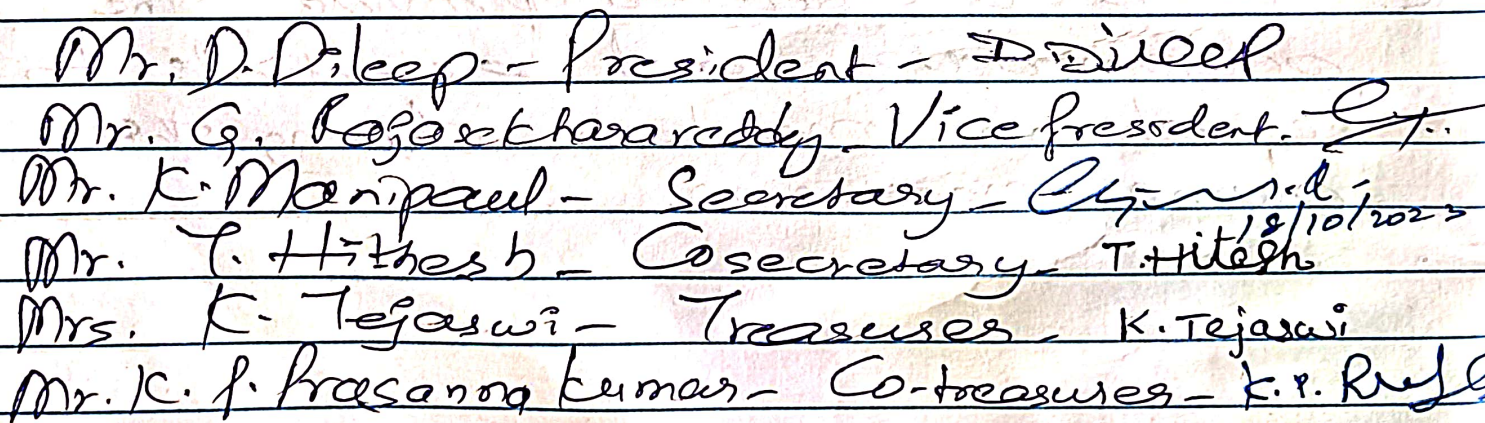 Mr. D. Dileep - President - D Dileep
Mr. G. Rajasekharareddy - Vice President.
Mr. K. Manipaul - Secretary -
18/10/2023
Mr. T. Hithesh - Cosecretary - T. Hitesh
Mrs. K. Tejaswi - Treasurer - K. Tejaswi
Mr. K. P. Prasanna kumar - Co-treasurer - K. P.